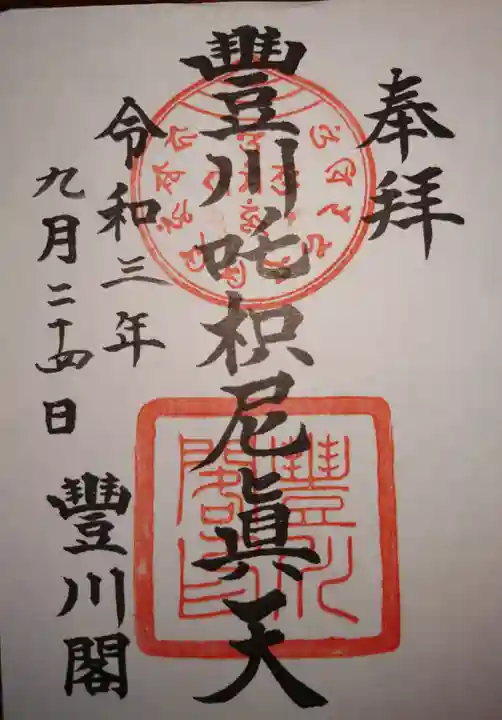 奉拜
豐川吒枳尼眞天
令和三年
九月二十四日
豐川閣
豐川閣印